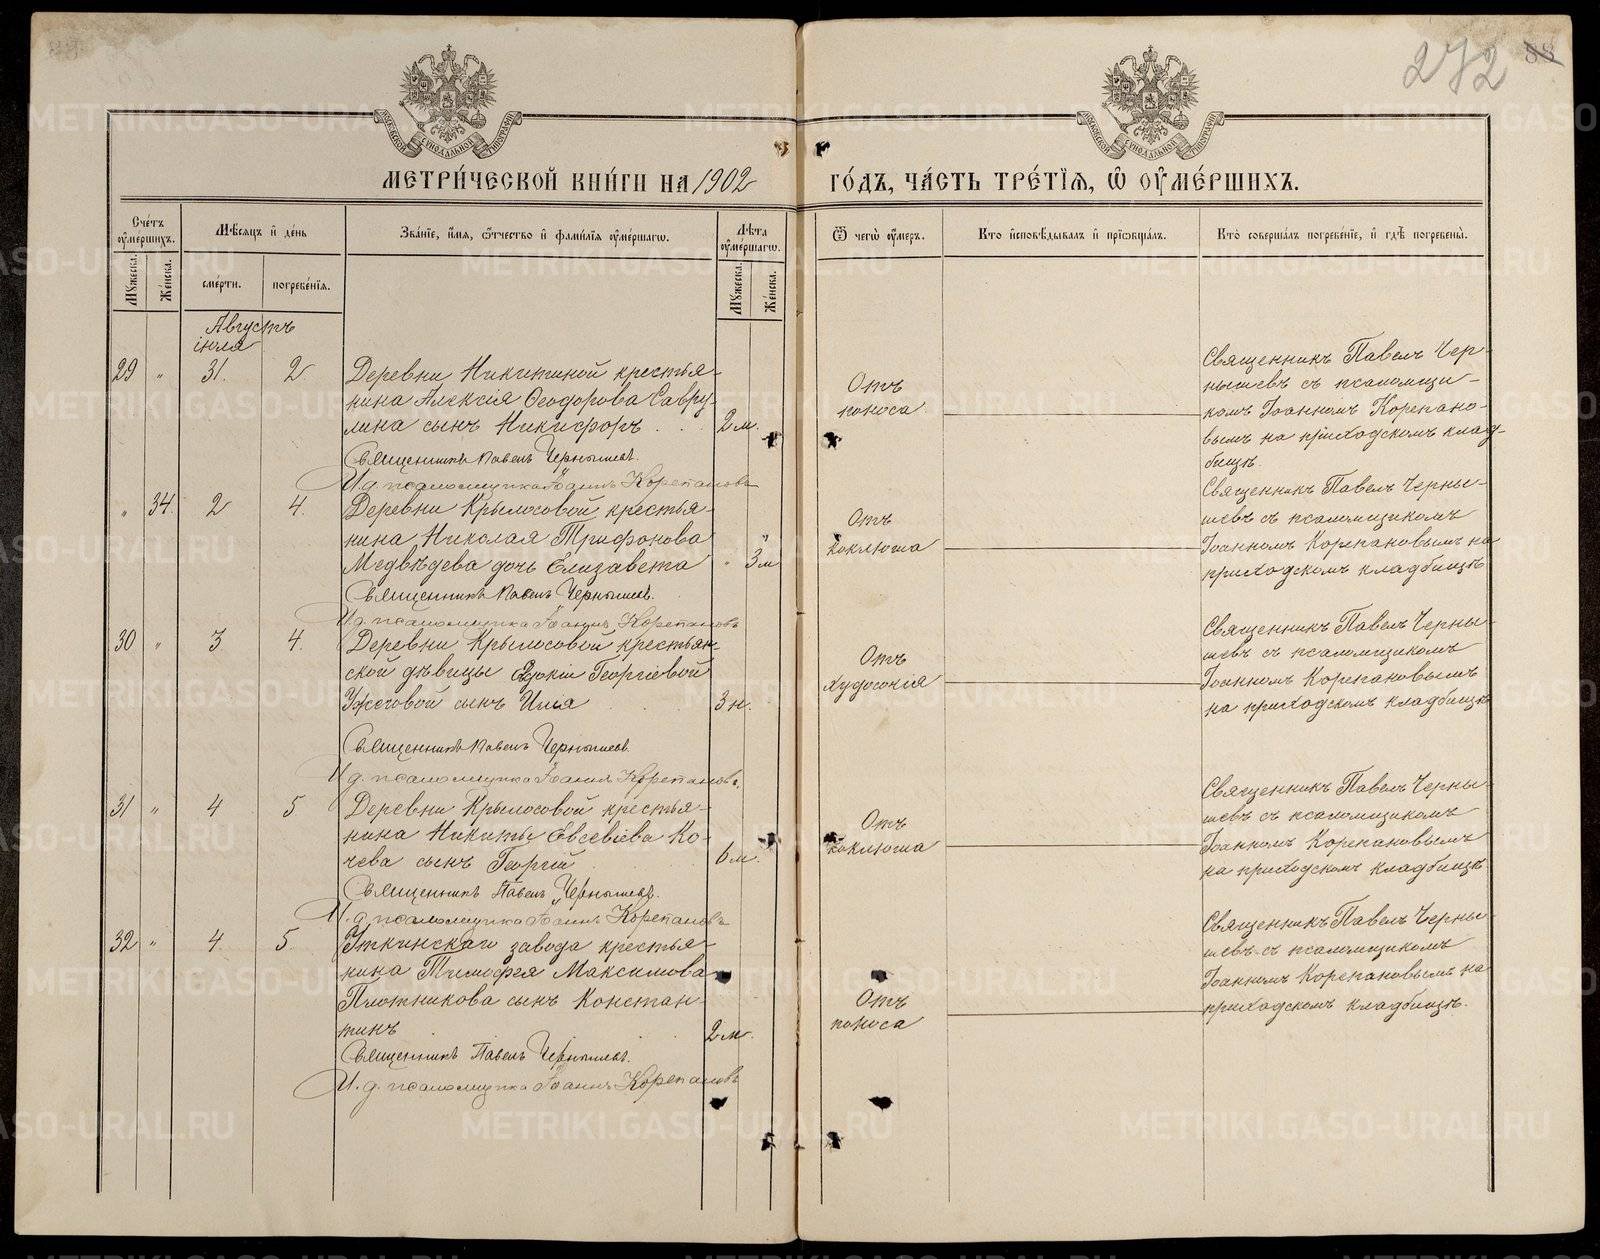 272 88
МОСКОВСКОЙ СУНОДАЛЬНОЙ ТИПОГРАФІИ
МОСКОВСКОЙ СУНОДАЛЬНОЙ ТИПОГРАФІИ
МЕТРИ́ЧЕСКОЙ КНИ́ГИ НА 1902 ГО́ДЪ, ЧА́СТЬ ТРЕ́ТІѦ, Ѡ ОУМЕ́РШИХЪ.
Сче́тъ оуме́ршихъ.
Мꙋжеска.
Же́нска.
Мѣ́сяцъ и҆ де́нь
сме́рти.
погребе́нїѧ.
Зва́нїе, и҆́мѧ, ѻ҆́тчество и҆ фами́лїѧ оуме́ршагѡ.
Лѣ́та оуме́ршагѡ.
Мꙋжеска.
Же́нска.
Ѿ чегѡ̀ оу́меръ.
Кто̀ и҆сповѣ́дывалъ и҆ прїѡбща́лъ.
Кто̀ соверша́лъ погребе́нїе, и҆ гдѣ̀ погребены̀.
Августъ
іюля
29 " 31. 2 Деревни Никитиной крестья-
нина Алексія Ѳеодорова Савру-
лина сынъ Никифоръ . . . 2 м.
Священникъ Павелъ Чернышевъ.
И. д. псаломщика Іоаннъ Корепановъ
Отъ
поноса
Священникъ Павелъ Чер-
нышевъ съ псаломщи-
комъ Іоанномъ Корепано-
вымъ на приходскомъ клад-
бищѣ.
" 34. 2 4. Деревни Крылосовой крестья-
нина Николая Трифонова
Медвѣдева дочь Елизавета " 3 м
Священникъ Павелъ Чернышевъ.
И. д. псаломщика Іоаннъ Корепановъ
Отъ
коклюша
Священникъ Павелъ Черны-
шевъ съ псаломщикомъ
Іоанномъ Корепановымъ на
приходскомъ кладбищѣ
30 " 3 4. Деревни Крылосовой крестьян-
ской дѣвицы Евдокіи Георгіевой
Ужеговой сынъ Илія 3 н.
Священникъ Павелъ Чернышевъ.
И. д. псаломщика Іоаннъ Корепановъ.
Отъ
худосочія
Священникъ Павелъ Черны-
шевъ съ псаломщикомъ
Іоанномъ Корепановымъ
на приходскомъ кладбищѣ
31 " 4 5 Деревни Крылосовой крестья-
нина Никиты Евсевіева Ко-
чева сынъ Георгій 6 м.
Священникъ Павелъ Чернышевъ.
И. д. псаломщика Іоаннъ Корепановъ
Отъ
коклюша
Священникъ Павелъ Черны-
шевъ съ псаломщикомъ
Іоанномъ Корепановымъ
на приходскомъ кладбищѣ
32 " 4 5. Уткинскаго завода крестья-
нина Тимофея Максимова
Плотникова сынъ Констан-
тинъ 2 м.
Священникъ Павелъ Чернышевъ.
И. д. псаломщика Іоаннъ Корепановъ
Отъ
поноса
Священникъ Павелъ Черны-
шевъ съ псаломщикомъ
Іоанномъ Корепановымъ на
приходскомъ кладбищѣ.
METRIKI.GASO-URAL.RU